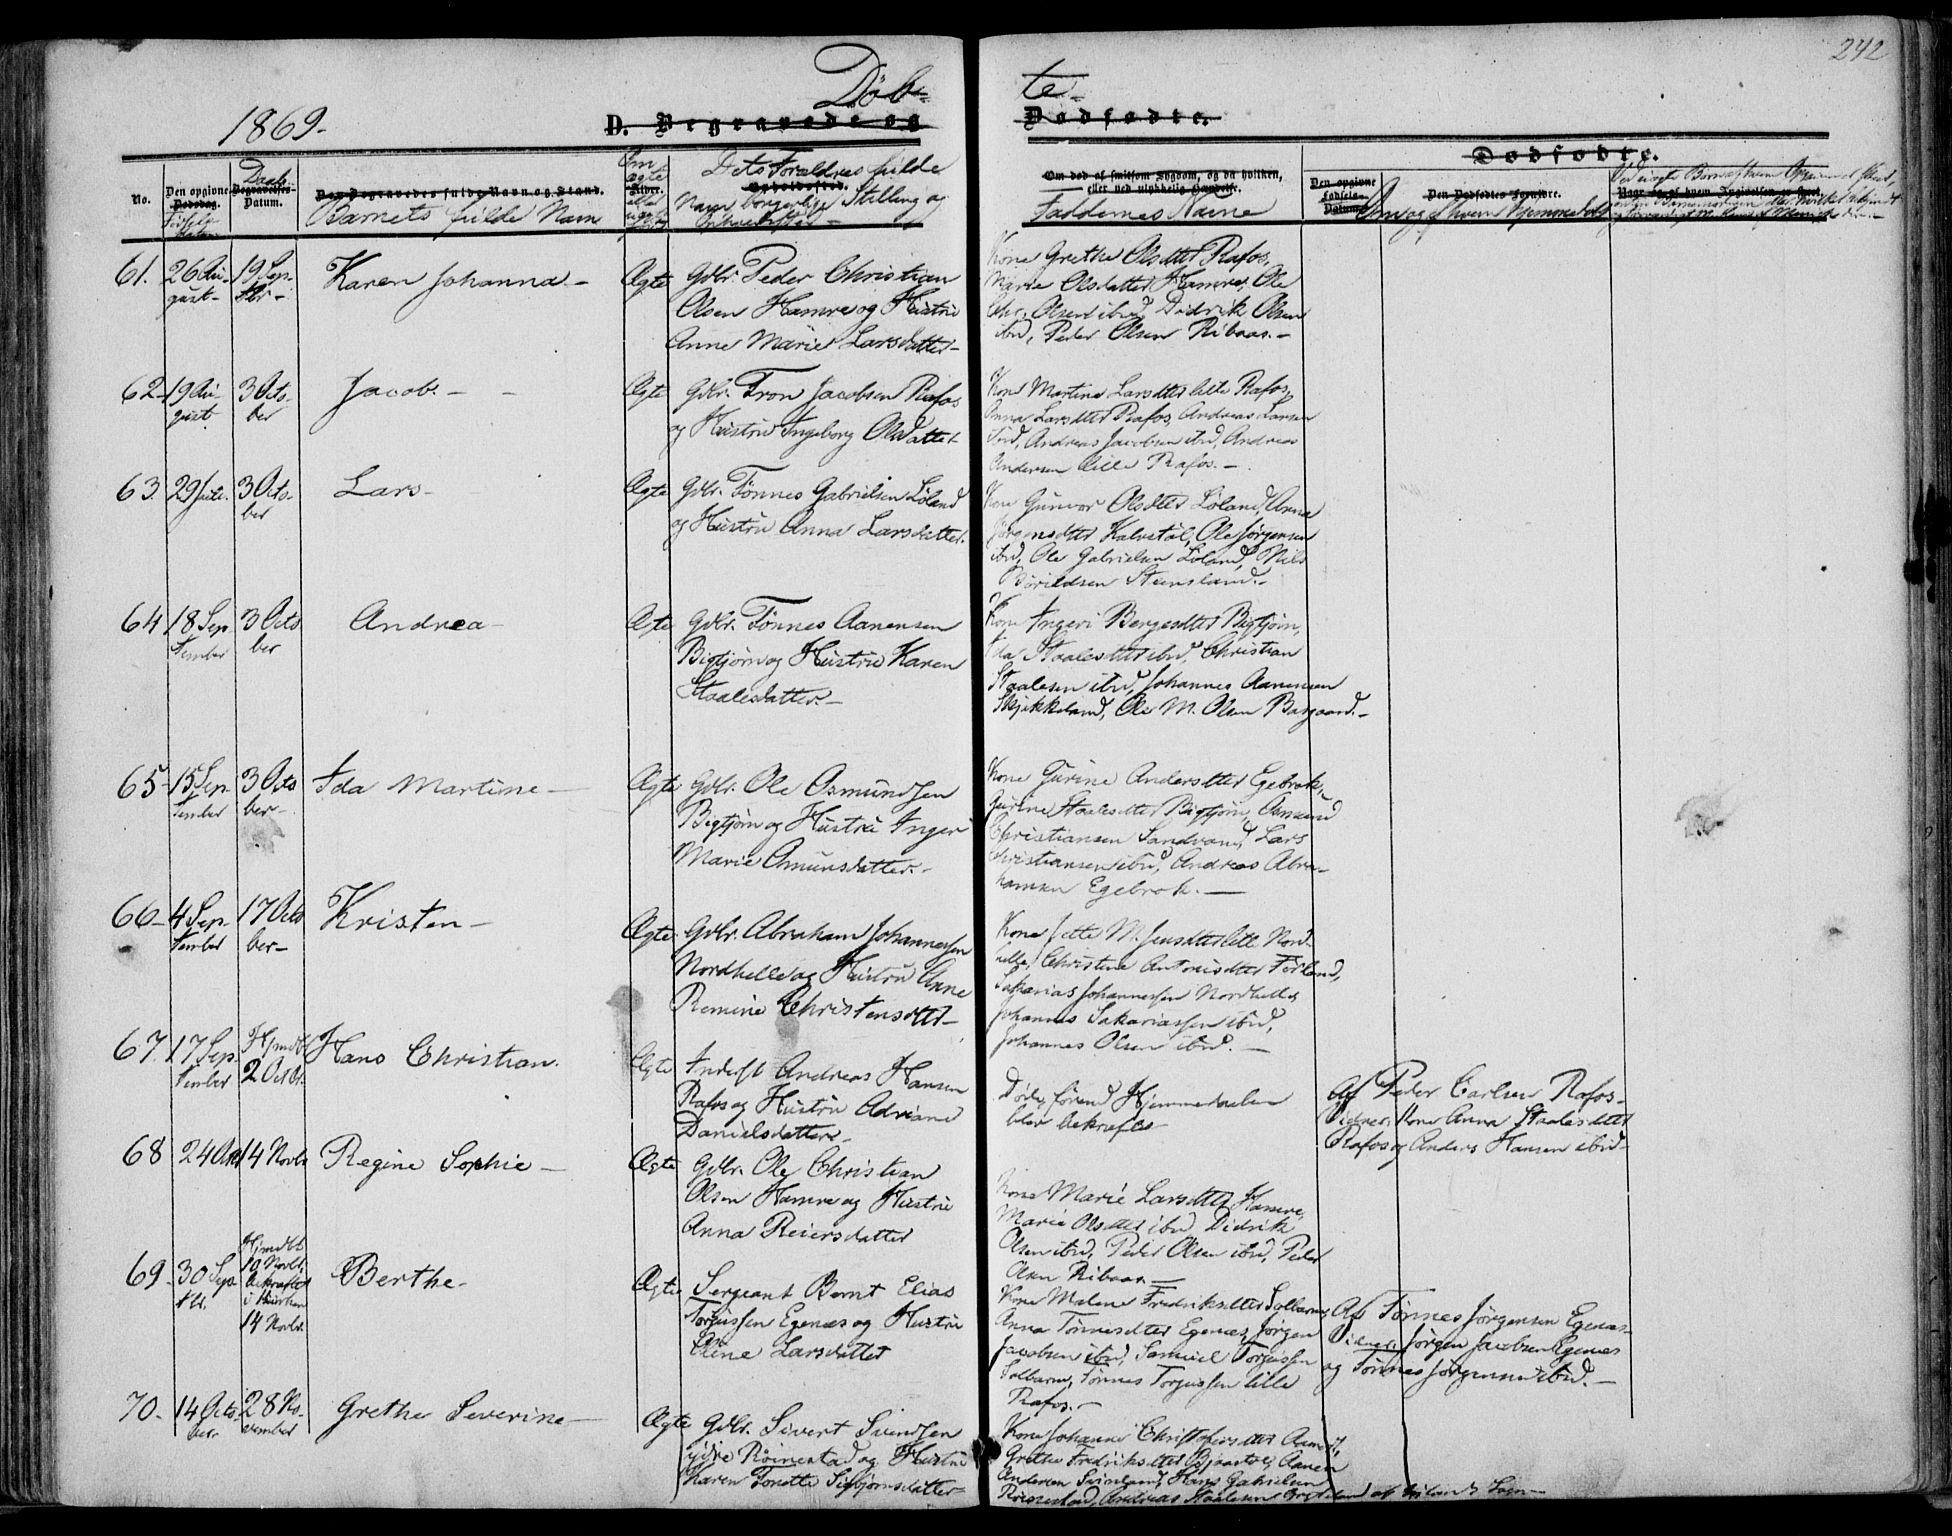 242
Döb-
te-
1869-
D. Begravede og
Dødfødte.
Dødfødte.
No.
Den opgivne
Dødsdag.
Daabs
Begravelses-
Datum.
Den Begravedes fulde Navn og Stand.
Barnets fulde Navn
Om
ægte
Alder.
eller
Dets Foraldres fulde
Opholdssted.
Navn borgerlige Stilling og
Om død af smitsom Sygdom, og da hvilken,
eller ved ulykkelig Hændelse.
Faddernes Navne
Den opgivne
Fødsels-
Datum.
Den Dødfødtes Forældre.
Om og af hvem hjemmedøbt
61.
26 Au-
gust-
19 Sep-
tbr-
Karen Johanna-
Ægte
Gdbr. Peder Christian
Olsen Hamre og Hustru
Anne Marie Larsdatter-
Kone Grethe Olsdtter Rafos,
Marie Olsdatter Hamre, Ole
Chr. Olsen ibid, Didrik Olsen
ibid, Peder Olsen Ribaas.-
62-
19 Au-
gust.
3 Octo-
ber
Jacob.-
Ægte
Gdbr. Tron Jacobsen Rafos
og Hustru Ingeborg Olsdatter
Kone Martine Larsdtter lille Rafos,
Anna Larsdtter Rafos, Andreas Larsen
ibid, Andreas Jacobsen ibid, Andreas
Andersen lille Rafos.-
63.
29 Juli.
3 Octo-
ber
Lars-
Ægte
Gdbr. Tønnes Gabrielsen Løland
og Hustru Anna Larsdatter.
Kone Gunvor Olsdtter Løland, Anna
Jørgensdtter Kalvstøl, Ole Jørgensen
ibid, Ole Gabrielsen Løland, Nils
Børildsen Steensland.-
64
18 Sep
tember
3 Octo
ber
Andrea-
Ægte
Gdbr. Tønnes Aanensen
Bigtjørn og Hustru Karen
Staalesdatter.-
Kone Ingeri Bergesdtter Bigtjørn,
Ida Staalesdtter ibid, Christian
Staalesen ibid, Johannes Aanensen
Skjekkeland, Ole M. Olsen Bargaard.-
65-
15 Sep
tember
3 Octo
ber-
Ida Martine-
Ægte
Gdbr. Ole Osmundsen
Bigtjørn og Hustru Inger
Marie Amunsdatter.-
Kone Turine Andersdtter Egebrok,
Gurine Staalesdtter Bigtjørn, Osmund
Christiansen Sandvand, Lars
Christiansen ibid, Andreas Abra-
hamsen Egebrok.-
66-
4 Sep-
tember
17 Octo
ber-
Kristen-
Ægte
Gdbr. Abraham Johannessen
Nordhelle og Hustru Anne
Remine Christensdtter-
Kone Jette M. Jensdtter lille Nord-
helle, Christine Antonisdtter Førland,
Sakarias Johannessen Nordhelle,
Johannes Sakariassen ibid,
Johannes Olsen ibid.-
67.
17 Sep.
tember
Hjmdbt
2 Octbr.
Hans Christian.
Ægte
Inderst Andreas Hansen
Rafos og Hustru Adriane
Danielsdatter.-
Døde, førend Hjemmedaaben
blev bekræftet-
Af Peder Carlsen Rafos-
Vidner: Kone Anna Staalesdtter
Rafos og Anders Hansen ibid-
68
24 Oct
14 Novbr
Regine Sophie-
Ægte
Gdbr. Ole Christian
Olsen Hamre og Hustru
Anna Reiersdatter
Kone Marie Larsdtter Hamre,
Marie Olsdtter ibid, Didrik
Olsen ibid, Peder Olsen ibid, Peder
Olsen Ribaas.-
69-
30 Sep-
tbr.
Hjmdbt
10 Novbr,
bekræftet
i Kirken
14 Novbr.
Berthe-
Ægte
Sergeant Bernt Elias
Torjussen Egenæs og Hustru
Elene Larsdatter
Kone Malene Fredriksdtter Solbarm,
Anna Tønnesdtter Egenæs, Jørgen
Jacobsen ibid, Samuel Torjussen
Solbarm, Tønnes Torjussen lille
Rafos.-
Af Tønnes Jørgensen Egenæs-
Vidner: Jørgen Jacobsen Egenæs
og Tønnes Jørgensen ibid.-
70-
14 Octo-
ber.
28 No-
vember
Grethe Severine-
Ægte
Gdbr. Sivert Svendsen
ydre Röinestad og Hustru
Karen Tonette Sigbjørnsdatter-
Kone Johanne Christophersdtter
Grethe Fredriksdtter Aanen
Andersen Hans Gabrielsen
Röinestad, Andreas Staalesen